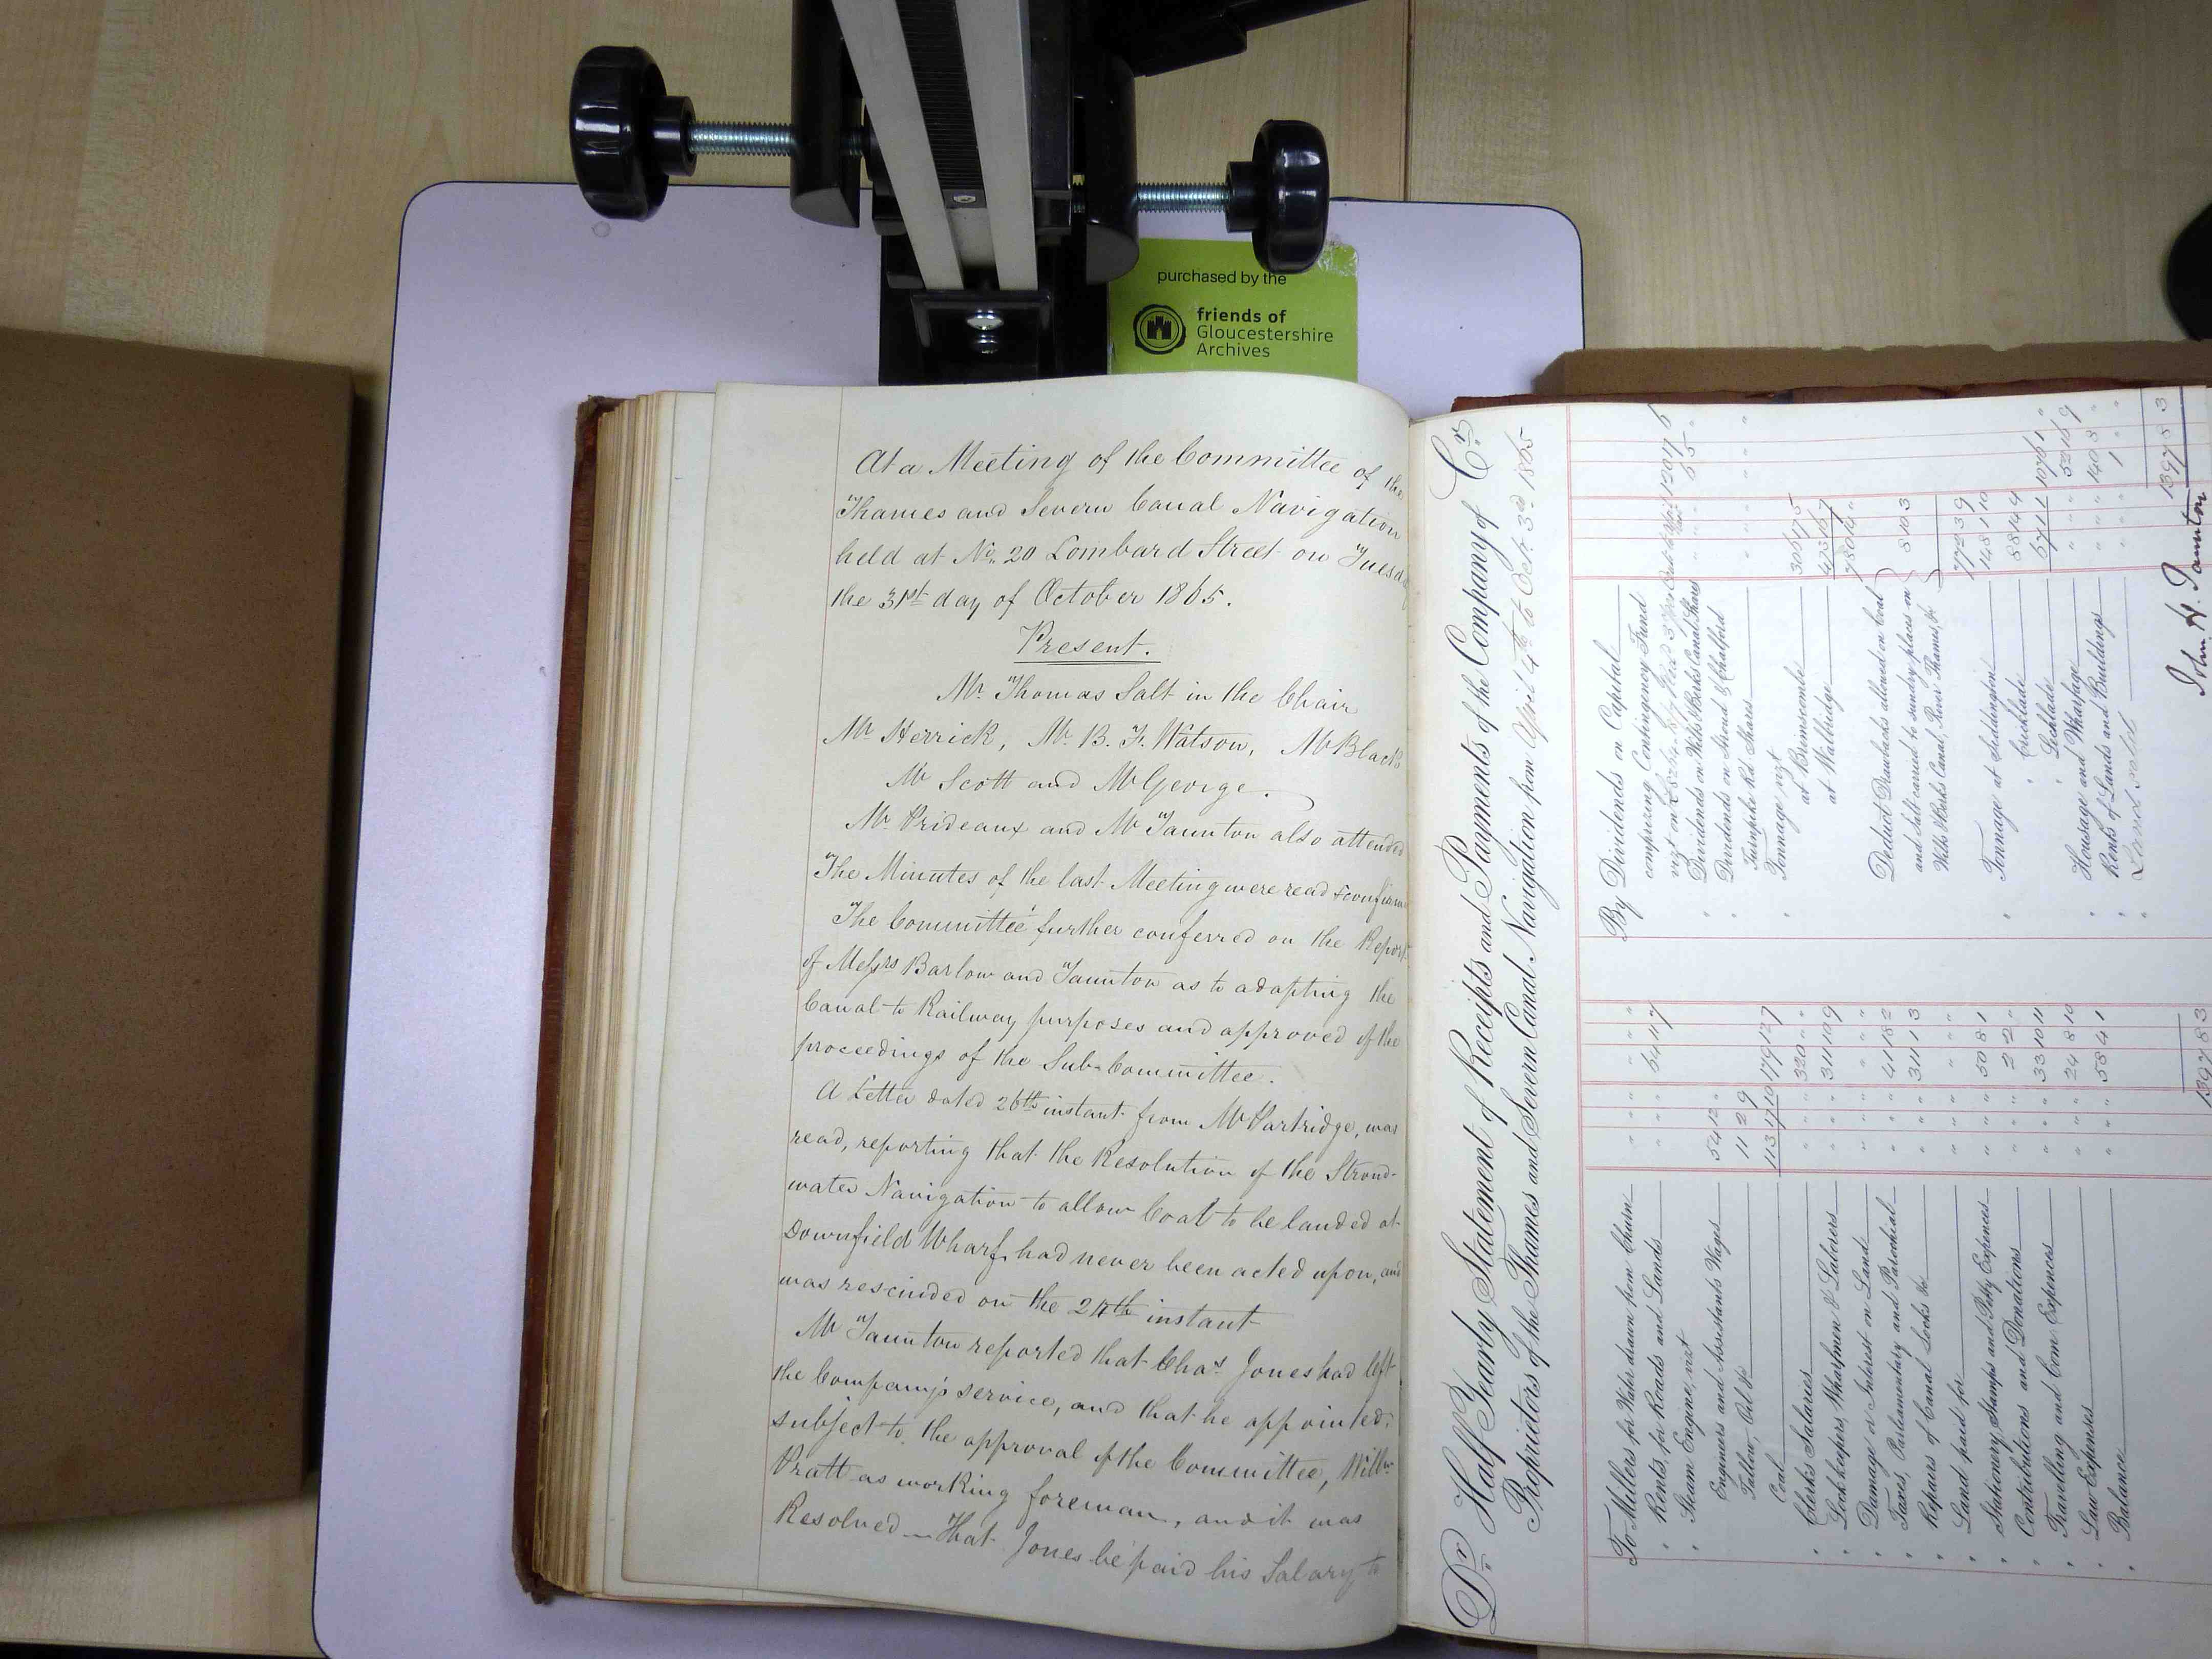 purchased by the
friends of
Gloucestershire
Archives
At a Meeting of the Committee of the
Thames and Severn Canal Navigation
held at No. 20 Lombard Street on Tuesda
the 31st day of October 1865.
Present.
Mr Thomas Salt in the Chair
Mr Herrick, Mr B. F. Watson, Mr Black
Mr Scott and Mr George.
Mr Prideaux and Mr Taunton also attended
The Minutes of the last Meeting were read & confirm
The Committee further conferred on the Report
of Messrs Barlow and Taunton as to adapting the
Canal to Railway purposes and approved of the
proceedings of the Sub-Committee.
A Letter dated 26th instant from Mr Partridge, was
read, reporting that the Resolution of the Stroud-
water Navigation to allow Coal to be landed at
Downfield Wharf, had never been acted upon, and
was rescinded on the instant
Mr Taunton reported that Chas Jones had left
the Company's service, and that he appointed,
subject to the approval of the Committee, Willm
Pratt as working foreman, and it was
Resolved - That Jones be paid his Salary to
Dr Half Yearly Statement of Receipts and Payments of the Company of Cr
Proprietors of the Thames and Severn Canal Navigation from April 4th to Octr 3rd 1865
To Millers for Water drawn from Churn
" Rents, for Roads and Lands 54 11 7
" Steam Engine, vizt
Engineers and Assistants Wages 54 12 "
Tallow, Oil &c 11 2 9
Coal 113 17 10 179 12 7
" Clerks Salaries 320 " "
" Lockkeepers, Wharfmen & Laborers 311 19 9
" Damage or Interest on Land
" Taxes, Parliamentary and Parochial 41 18 2
" Repairs of Canal Locks &c 311 1 3
" Land paid for
" Stationery, Stamps and Petty Expences 50 8 1
" Contributions and Donations 2 2 "
" Travelling and Com: Expences 33 10 11
" Law Expenses 24 8 10
" Balance 58 4 1
1397 8 3
By Dividends on Capital
comprizing Contingency Fund
" Dividends on Wilts & Berks Canal Shares 65 " "
" Dividends on Stroud & Chalford
Turnpike Rd Shares
" Tonnage, vizt
at Brimscombe
at Wallbridge
Deduct Drawbacks allowed on Coal
and Salt carried to sundry places on
Wilts & Berks Canal, River Thames, &c 8 10 3
" Tonnage at Siddington 148 1 10
" Cricklade 88 14 4
" Lechlade
" Housage and Wharfage
" Rents of Lands and Buildings
" Land sold
1397 8 3
John H. Taunton